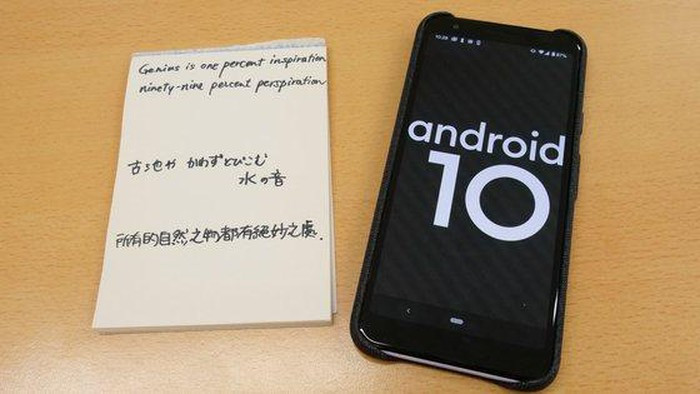 Genius is one percent inspiration
ninety-nine percent perspiration
古池や かわずとびこむ
水の音
所有的自然之物都有絕妙之處.
10:29
87%
android
10